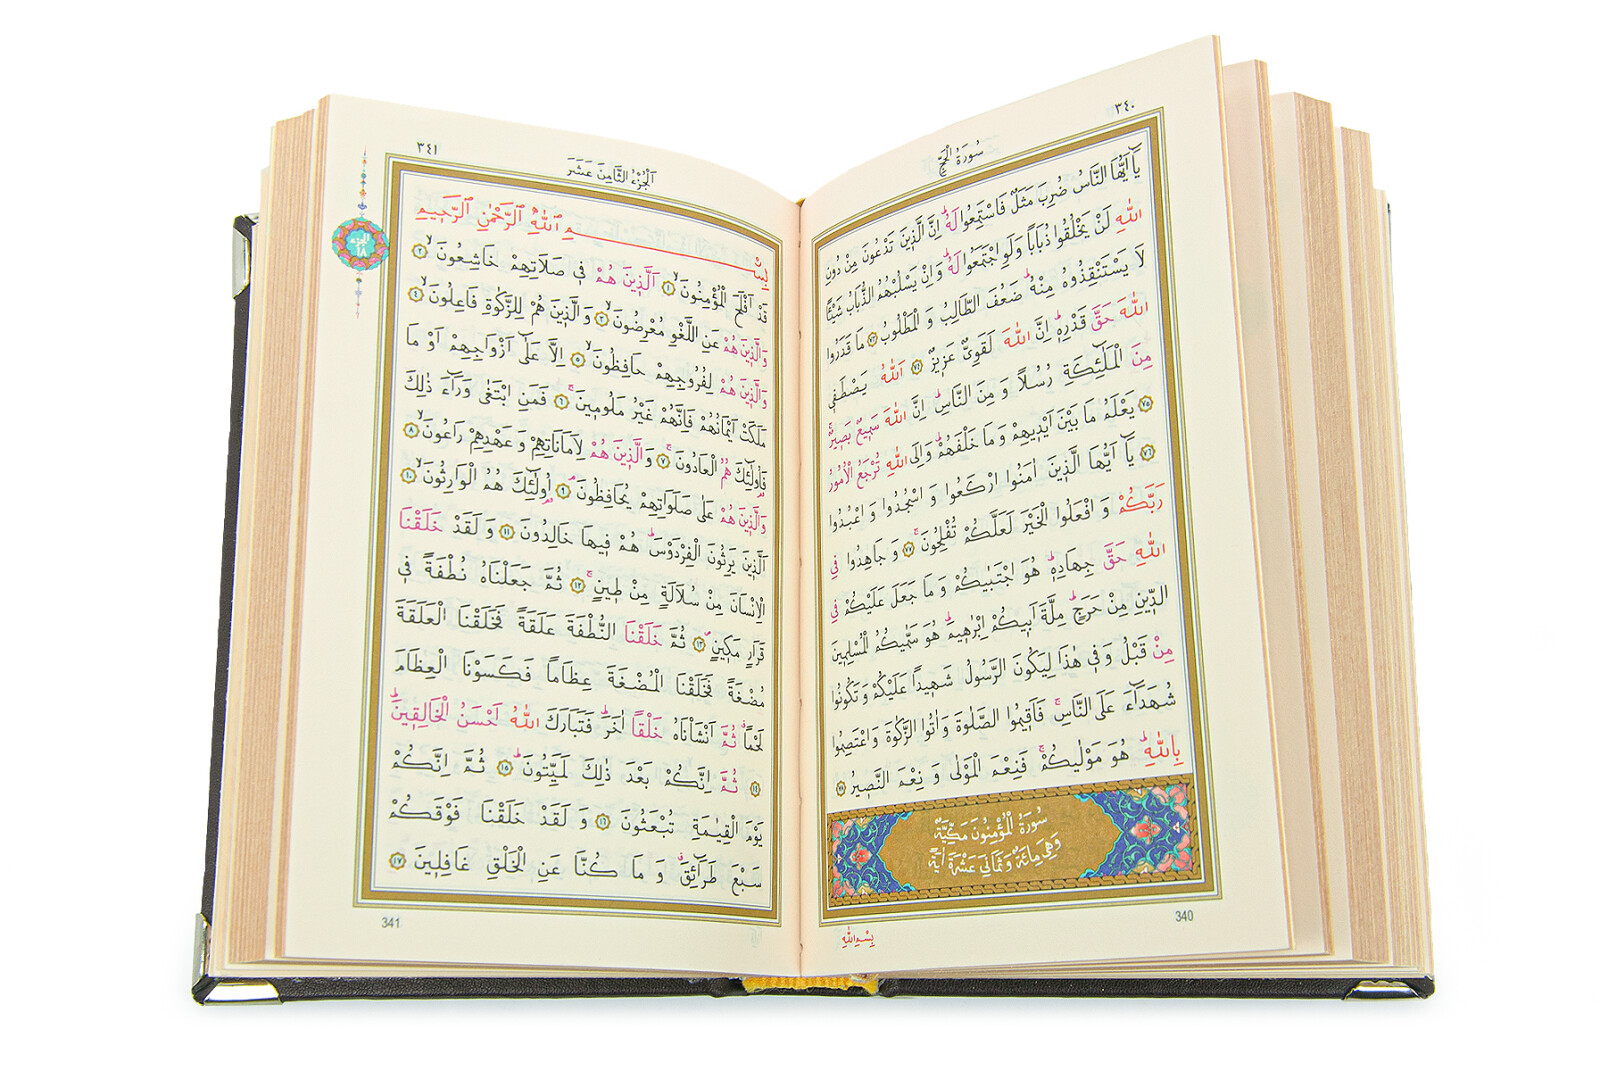 ٣٤٠
سُورَةُ الْحَجِّ
يَٓا اَيُّهَا النَّاسُ ضُرِبَ مَثَلٌ فَاسْتَمِعُوا لَهُ اِنَّ الَّذ۪ينَ تَدْعُونَ مِنْ دُونِ
اللّٰهِ لَنْ يَخْلُقُوا ذُبَاباً وَلَوِ اجْتَمَعُوا لَهُ وَاِنْ يَسْلُبْهُمُ الذُّبَابُ شَيْـٔاً
لَا يَسْتَنْقِذُوهُ مِنْهُ ضَعُفَ الطَّالِبُ وَ الْمَطْلُوبُ ٧٣ مَا قَدَرُوا
اللّٰهَ حَقَّ قَدْرِه۪ اِنَّ اللّٰهَ لَقَوِيٌّ عَز۪يزٌ ٧٤ اَللّٰهُ يَصْطَف۪ي
مِنَ الْمَلٰٓئِكَةِ رُسُلاً وَ مِنَ النَّاسِ اِنَّ اللّٰهَ سَم۪يعٌ بَص۪يرٌ
٧٥ يَعْلَمُ مَا بَيْنَ اَيْد۪يهِمْ وَ مَا خَلْفَهُمْ وَاِلَى اللّٰهِ تُرْجَعُ الْاُمُورُ
٧٦ يَٓا اَيُّهَا الَّذ۪ينَ اٰمَنُوا ارْكَعُوا وَ اسْجُدُوا وَ اعْبُدُوا
رَبَّكُمْ وَ افْعَلُوا الْخَيْرَ لَعَلَّكُمْ تُفْلِحُونَ ٧٧ وَ جَاهِدُوا فِي
اللّٰهِ حَقَّ جِهَادِه۪ هُوَ اجْتَبٰيكُمْ وَ مَا جَعَلَ عَلَيْكُمْ فِي
الدّ۪ينِ مِنْ حَرَجٍ مِلَّةَ اَب۪يكُمْ اِبْرٰه۪يمَ هُوَ سَمّٰيكُمُ الْمُسْلِم۪ينَ
مِنْ قَبْلُ وَ ف۪ي هٰذَا لِيَكُونَ الرَّسُولُ شَه۪يداً عَلَيْكُمْ وَ تَكُونُوا
شُهَدَٓاءَ عَلَى النَّاسِ فَاَق۪يمُوا الصَّلٰوةَ وَ اٰتُوا الزَّكٰوةَ وَ اعْتَصِمُوا
بِاللّٰهِ هُوَ مَوْلٰيكُمْ فَنِعْمَ الْمَوْلٰى وَ نِعْمَ النَّص۪يرُ ٧٨
سُورَةُ الْمُؤْمِنُونَ مَكِّيَّةٌ
وَهِيَ مِائَةٌ وَثَمَانِي عَشْرَةَ اٰيَةً
340
بِسْمِ اللّٰهِ
٣٤١
اَلْجُزْءُ الثَّامِنَ عَشَرَ
الجزء
١٨
بِسْمِ اللّٰهِ الرَّحْمٰنِ الرَّح۪يمِ
قَدْ اَفْلَحَ الْمُؤْمِنُونَ ١ اَلَّذ۪ينَ هُمْ ف۪ي صَلَاتِهِمْ خَاشِعُونَ ٢
وَالَّذ۪ينَ هُمْ عَنِ اللَّغْوِ مُعْرِضُونَ ٣ وَ الَّذ۪ينَ هُمْ لِلزَّكٰوةِ فَاعِلُونَ ٤
وَالَّذ۪ينَ هُمْ لِفُرُوجِهِمْ حَافِظُونَ ٥ اِلَّا عَلٰٓى اَزْوَاجِهِمْ اَوْ مَا
مَلَكَتْ اَيْمَانُهُمْ فَاِنَّهُمْ غَيْرُ مَلُوم۪ينَ ٦ فَمَنِ ابْتَغٰى وَرَٓاءَ ذٰلِكَ
فَاُو۬لٰٓئِكَ هُمُ الْعَادُونَ ٧ وَالَّذ۪ينَ هُمْ لِاَمَانَاتِهِمْ وَ عَهْدِهِمْ رَاعُونَ ٨
وَالَّذ۪ينَ هُمْ عَلٰى صَلَوَاتِهِمْ يُحَافِظُونَ ٩ اُو۬لٰٓئِكَ هُمُ الْوَارِثُونَ ١٠
اَلَّذ۪ينَ يَرِثُونَ الْفِرْدَوْسَ هُمْ ف۪يهَا خَالِدُونَ ١١ وَ لَقَدْ خَلَقْنَا
الْاِنْسَانَ مِنْ سُلَالَةٍ مِنْ ط۪ينٍ ١٢ ثُمَّ جَعَلْنَاهُ نُطْفَةً ف۪ي
قَرَارٍ مَك۪ينٍ ١٣ ثُمَّ خَلَقْنَا النُّطْفَةَ عَلَقَةً فَخَلَقْنَا الْعَلَقَةَ
مُضْغَةً فَخَلَقْنَا الْمُضْغَةَ عِظَاماً فَكَسَوْنَا الْعِظَامَ
لَحْماً ثُمَّ اَنْشَأْنَاهُ خَلْقاً اٰخَرَ فَتَبَارَكَ اللّٰهُ اَحْسَنُ الْخَالِق۪ينَ
١٤ ثُمَّ اِنَّكُمْ بَعْدَ ذٰلِكَ لَمَيِّتُونَ ١٥ ثُمَّ اِنَّكُمْ
يَوْمَ الْقِيٰمَةِ تُبْعَثُونَ ١٦ وَ لَقَدْ خَلَقْنَا فَوْقَكُمْ
سَبْعَ طَرَٓائِقَ وَ مَا كُنَّا عَنِ الْخَلْقِ غَافِل۪ينَ ١٧
341